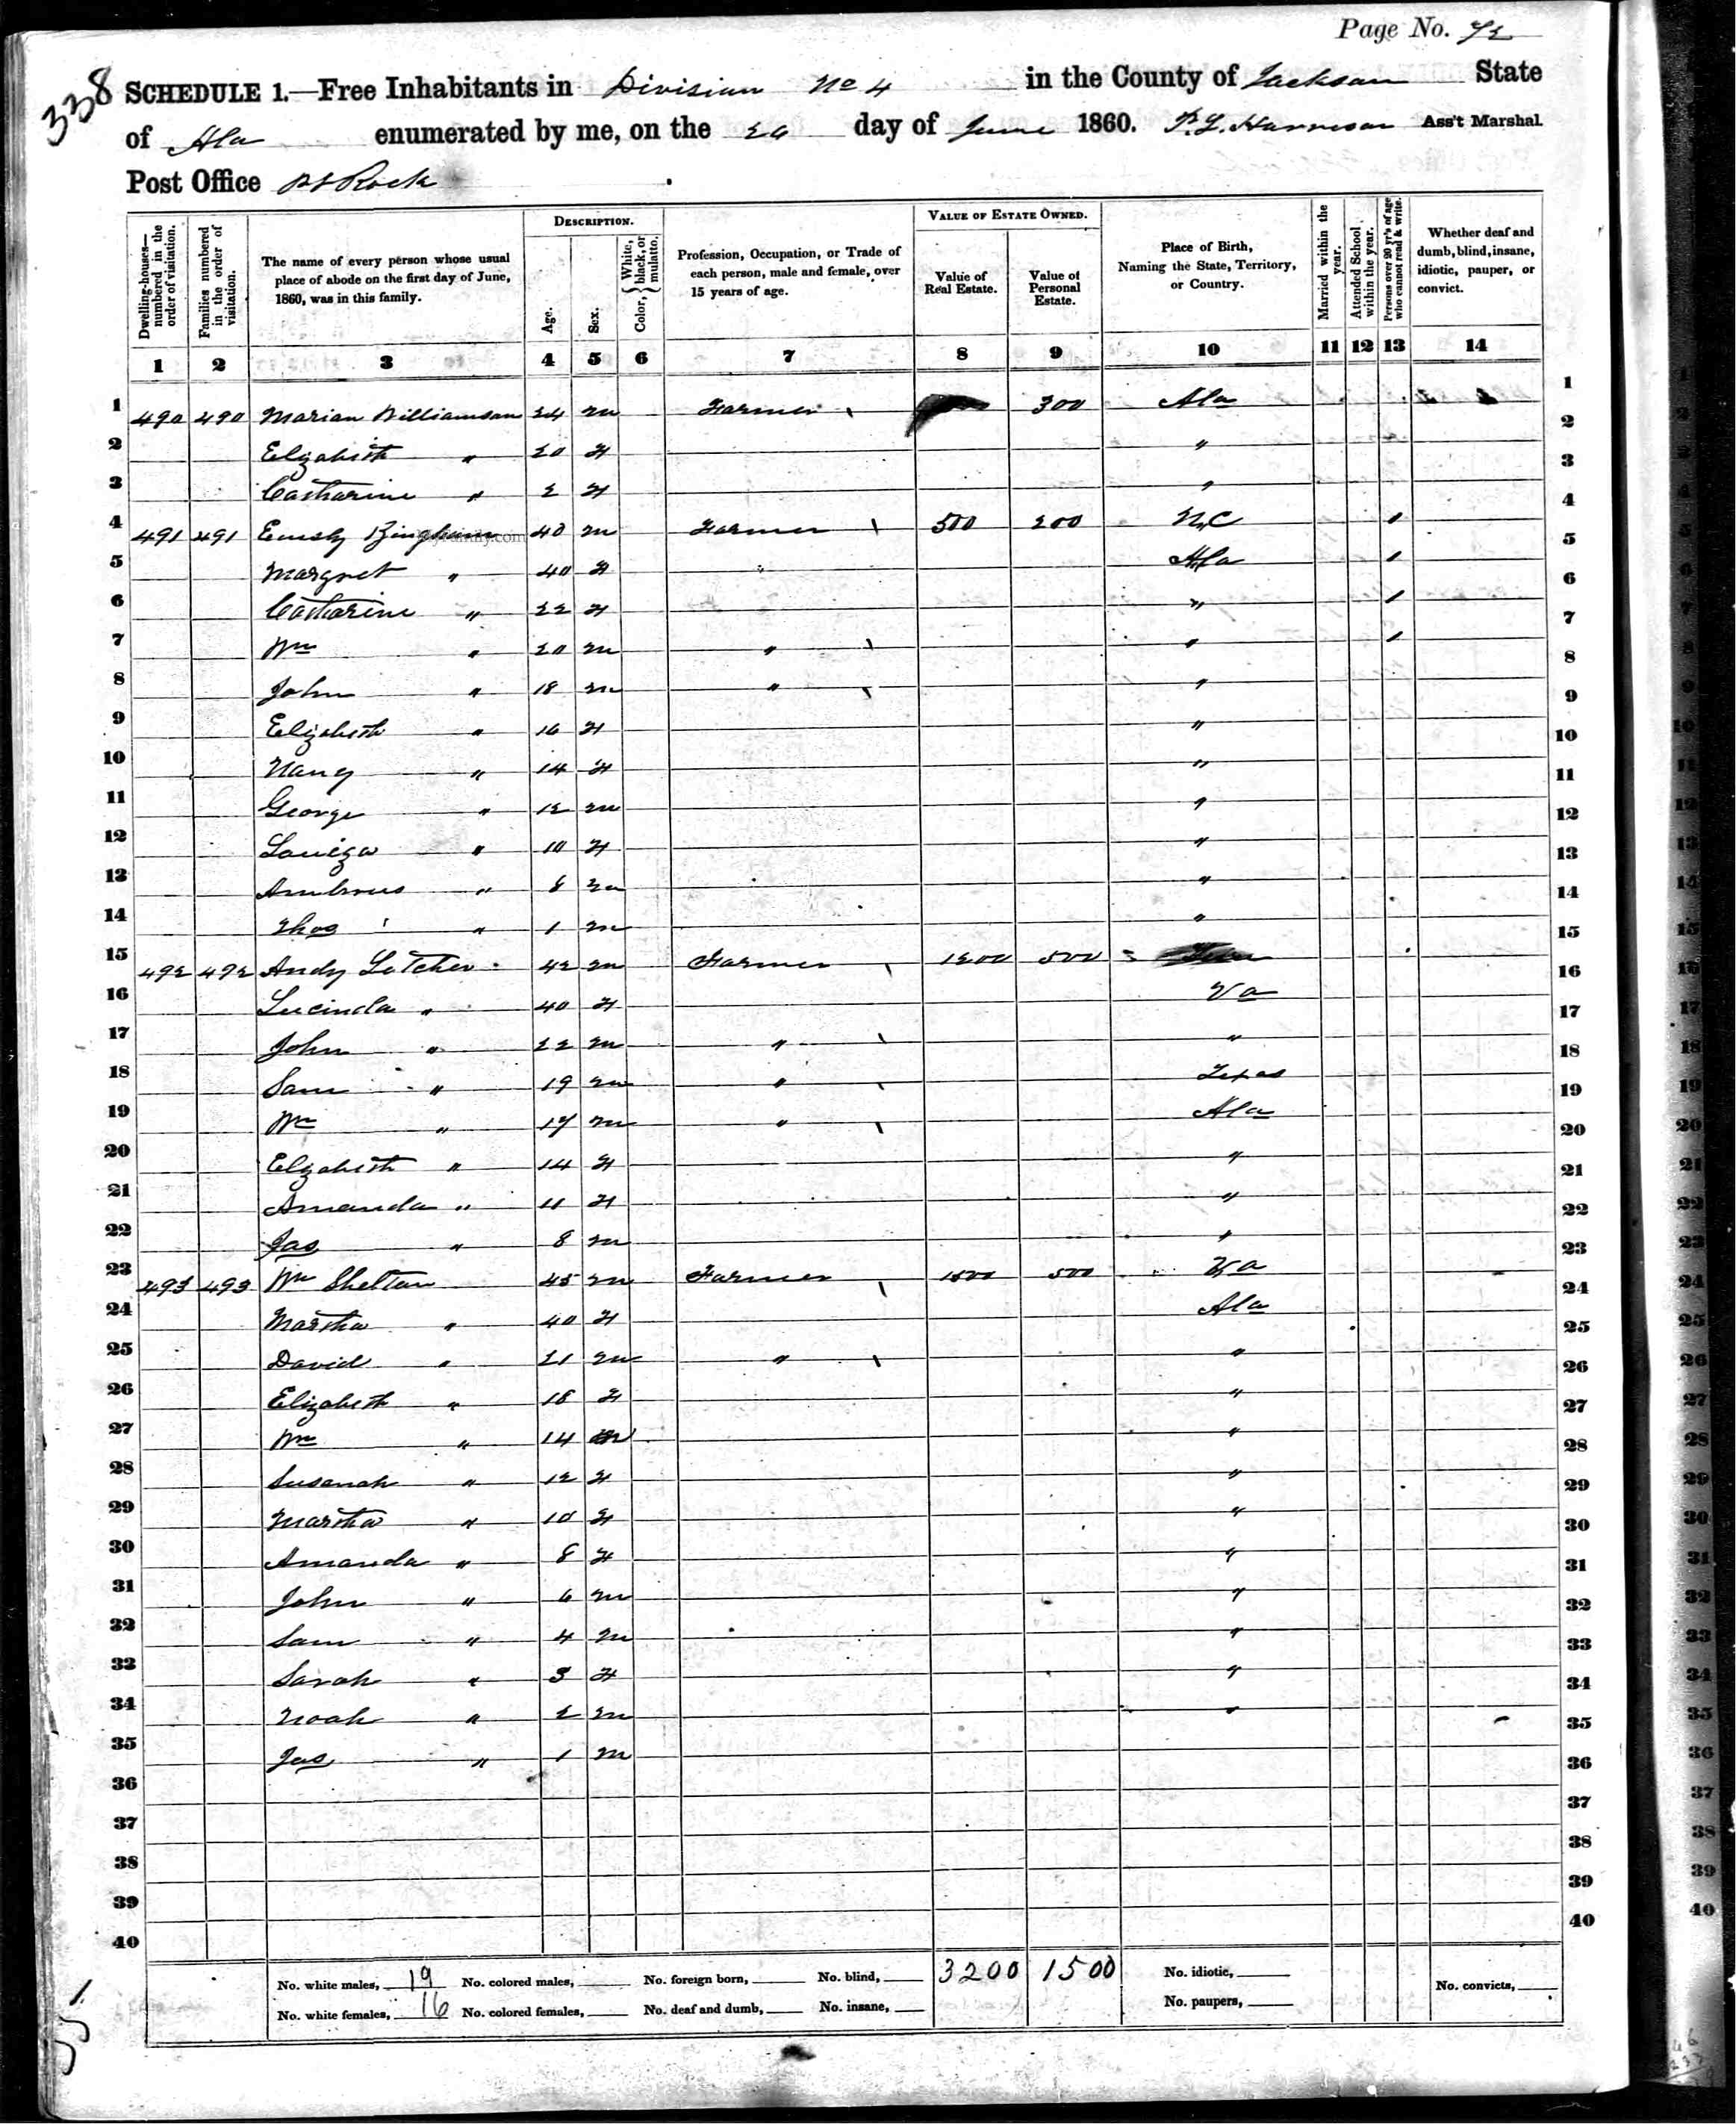 Page No. 72
338
SCHEDULE 1.—Free Inhabitants in Division No 4 in the County of Jackson State
of Ala enumerated by me, on the 20 day of June 1860. Harrison Ass't Marshal
Post Office Rock
DESCRIPTION. VALUE OF ESTATE OWNED.
Dwelling-houses—numbered in the order of visitation. Families numbered in the order of visitation. The name of every person whose usual place of abode on the first day of June, 1860, was in this family. Age. Sex. Color, {White, black, or mulatto. Profession, Occupation, or Trade of each person, male and female, over 15 years of age. Value of Real Estate. Value of Personal Estate. Place of Birth, Naming the State, Territory, or Country. Married within the year. Attended School within the year. Persons over 20 yr's of age who cannot read & write. Whether deaf and dumb, blind, insane, idiotic, pauper, or convict.
1 2 3 4 5 6 7 8 9 10 11 12 13 14
1 490 490 Marian Williamson 24 m Farmer 300 Ala 1
2 Elzabeth " 20 f " 2
3 Catharine " 2 f " 3
4 491 491 Bingham 40 m Farmer \ 500 200 N.C / 4
5 Margret " 40 f Ala / 5
6 Catharine " 22 f " / 6
7 Wm " 20 m " \ " / 7
8 John " 18 m " \ " 8
9 Elizabeth " 16 f " 9
10 Nancy " 14 f " 10
11 George " 12 m " 11
12 Louiza " 10 f " 12
13 Ambrous " 8 m " 13
14 Thos " 1 m " 14
15 492 492 Andy Letcher 42 m Farmer \ 1200 500 15
16 Lucinda " 40 f Va 16
17 John " 22 m " \ " 17
18 Sam " 19 m " \ Texas 18
19 Wm " 17 m " \ Ala 19
20 Elzabeth " 14 f " 20
21 Amanda " 11 f " 21
22 Jas " 8 m " 22
23 493 493 Wm Shelton 45 m Farmer \ 1500 500 Va 23
24 Martha " 40 f Ala 24
25 David " 21 m " \ " 25
26 Elizabeth " 18 f " 26
27 Wm " 14 m " 27
28 Susanah " 12 f " 28
29 Martha " 10 f " 29
30 Amanda " 8 f " 30
31 John " 6 m " 31
32 Sam " 4 m " 32
33 Sarah " 3 f " 33
34 Noah " 2 m " 34
35 Jas " 1 m 35
36 36
37 37
38 38
39 39
40 40
No. white males, 19 No. colored males, No. foreign born, No. blind, 3200 1500 No. idiotic, No. convicts,
No. white females, 16 No. colored females, No. deaf and dumb, No. insane, No. paupers,